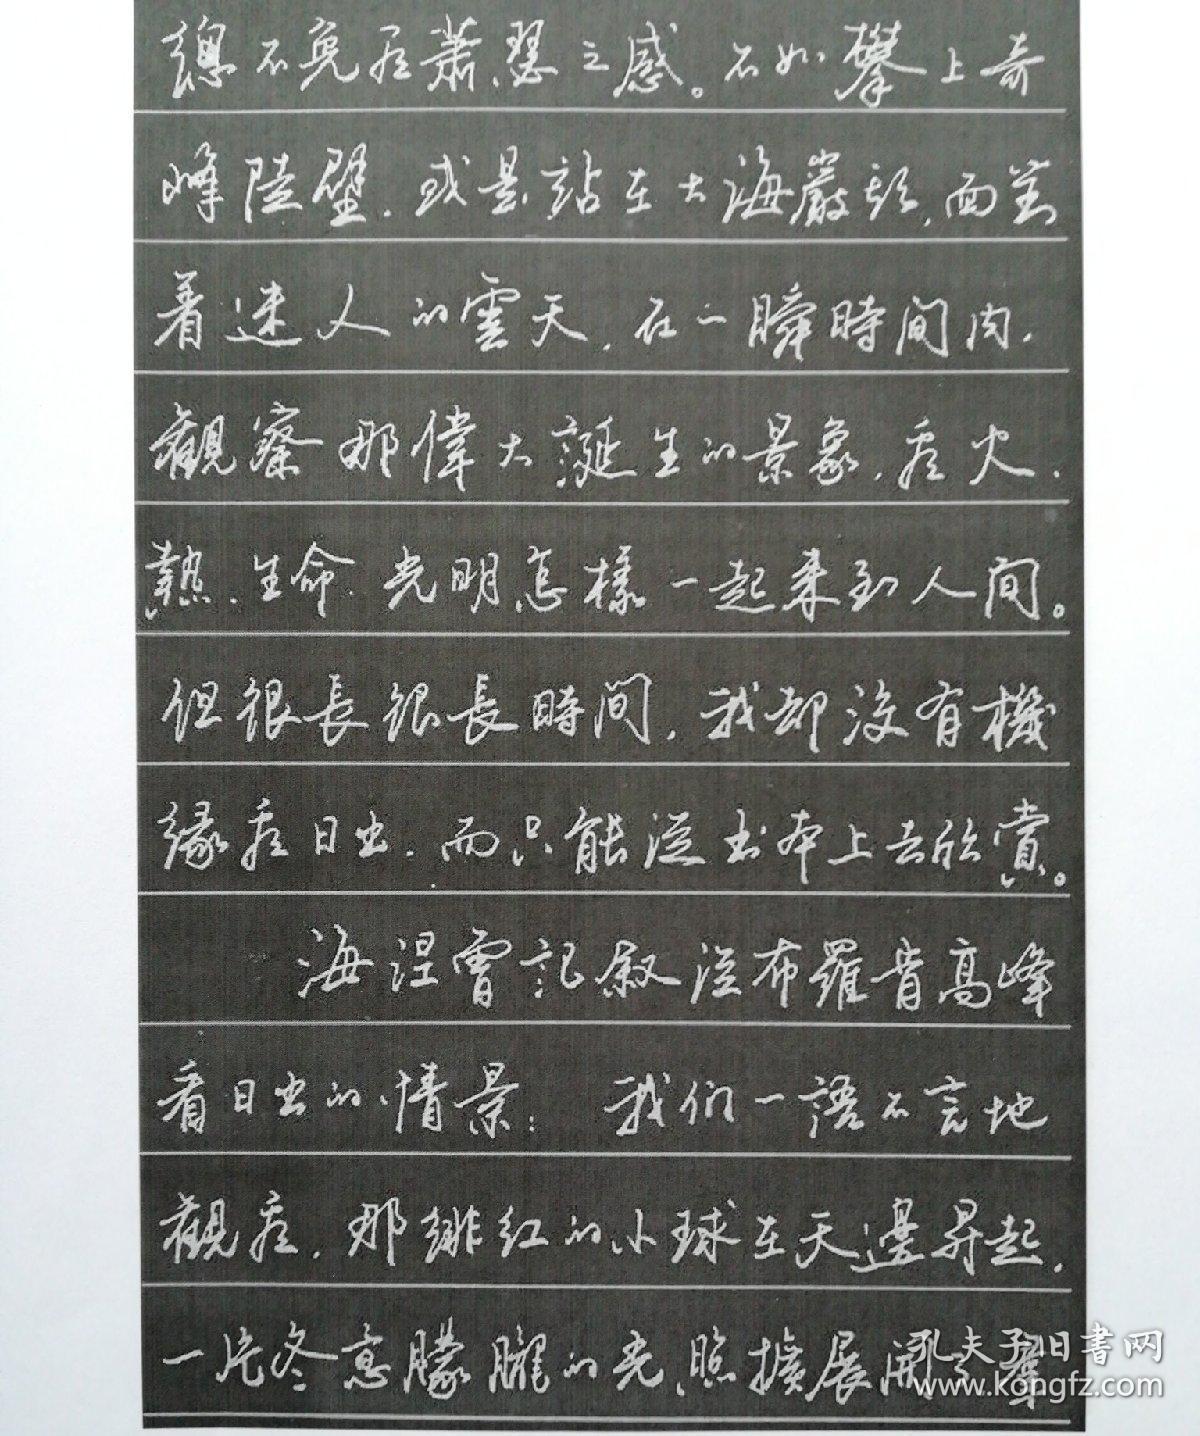 總不免有蕭瑟之感。不如攀上奇
峰陡壁，或是站在大海巖頭，面對
着迷人的雲天，在一瞬時間內，
觀察那偉大誕生的景象，看火、
熱、生命、光明怎樣一起來到人間。
但很長很長時間，我却沒有機
緣看日出，而只能從書本上去欣賞。
海涅曾記叙從布羅肯高峰
看日出的情景：我们一語不言地
觀看，那緋红的小球在天邊昇起，
一片冬意朦朧的光照擴展開了，羣
孔夫子旧书网
www.kongfz.com